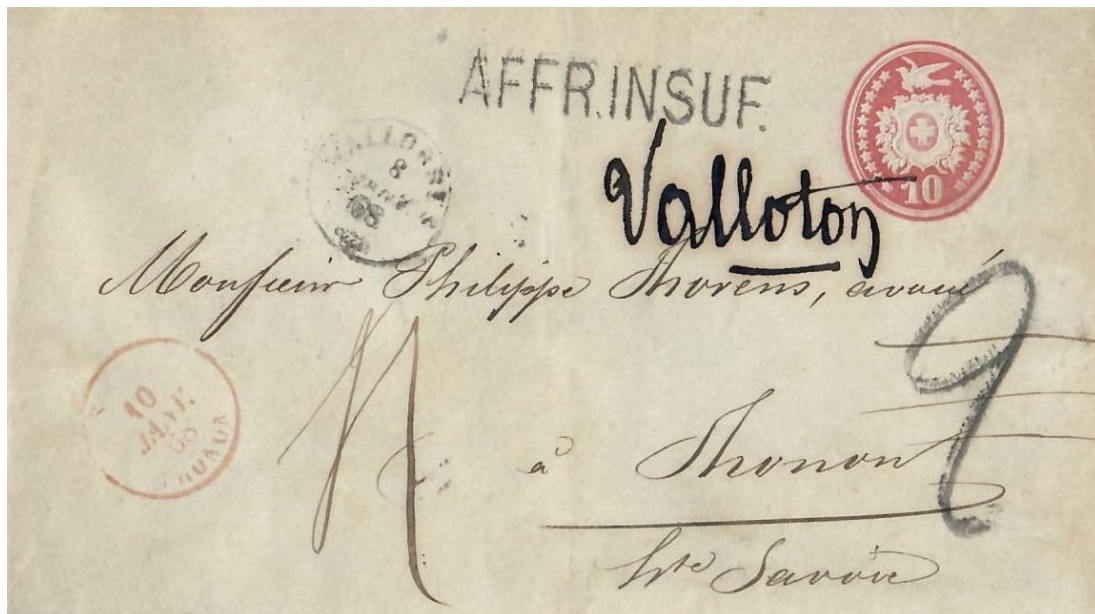 AFFR.INSUF.
10
VALLORBES
8
68
Valloton
Monsieur Philippe Thorens, avoué
10
JANV.
68
à Thonon
Hte Savoie
2